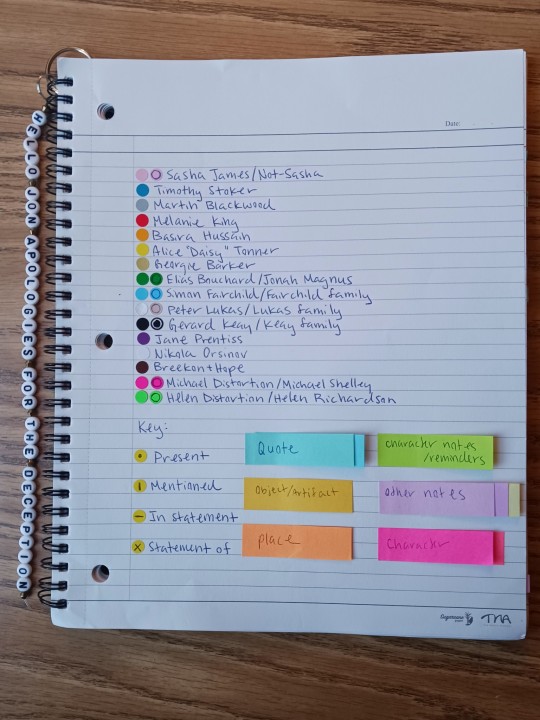 HELLO JON APOLOGIES FOR THE DECEPTION
Date:
Sasha James/Not-Sasha
Timothy Stoker
Martin Blackwood
Melanie King
Basira Hussain
Alice "Daisy" Tonner
Georgie Barker
Elias Bouchard/Jonah Magnus
Simon Fairchild/Fairchild family
Peter Lukas/Lukas family
Gerard Keay/Keay family
Jane Prentiss
Nikola Orsinov
Breekon+Hope
Michael Distortion/Michael Shelley
Helen Distortion/Helen Richardson
Key:
Present
Mentioned
In statement
Statement of
Quote
character notes
/reminders
Object/artifact
other notes
place
Character
TMA